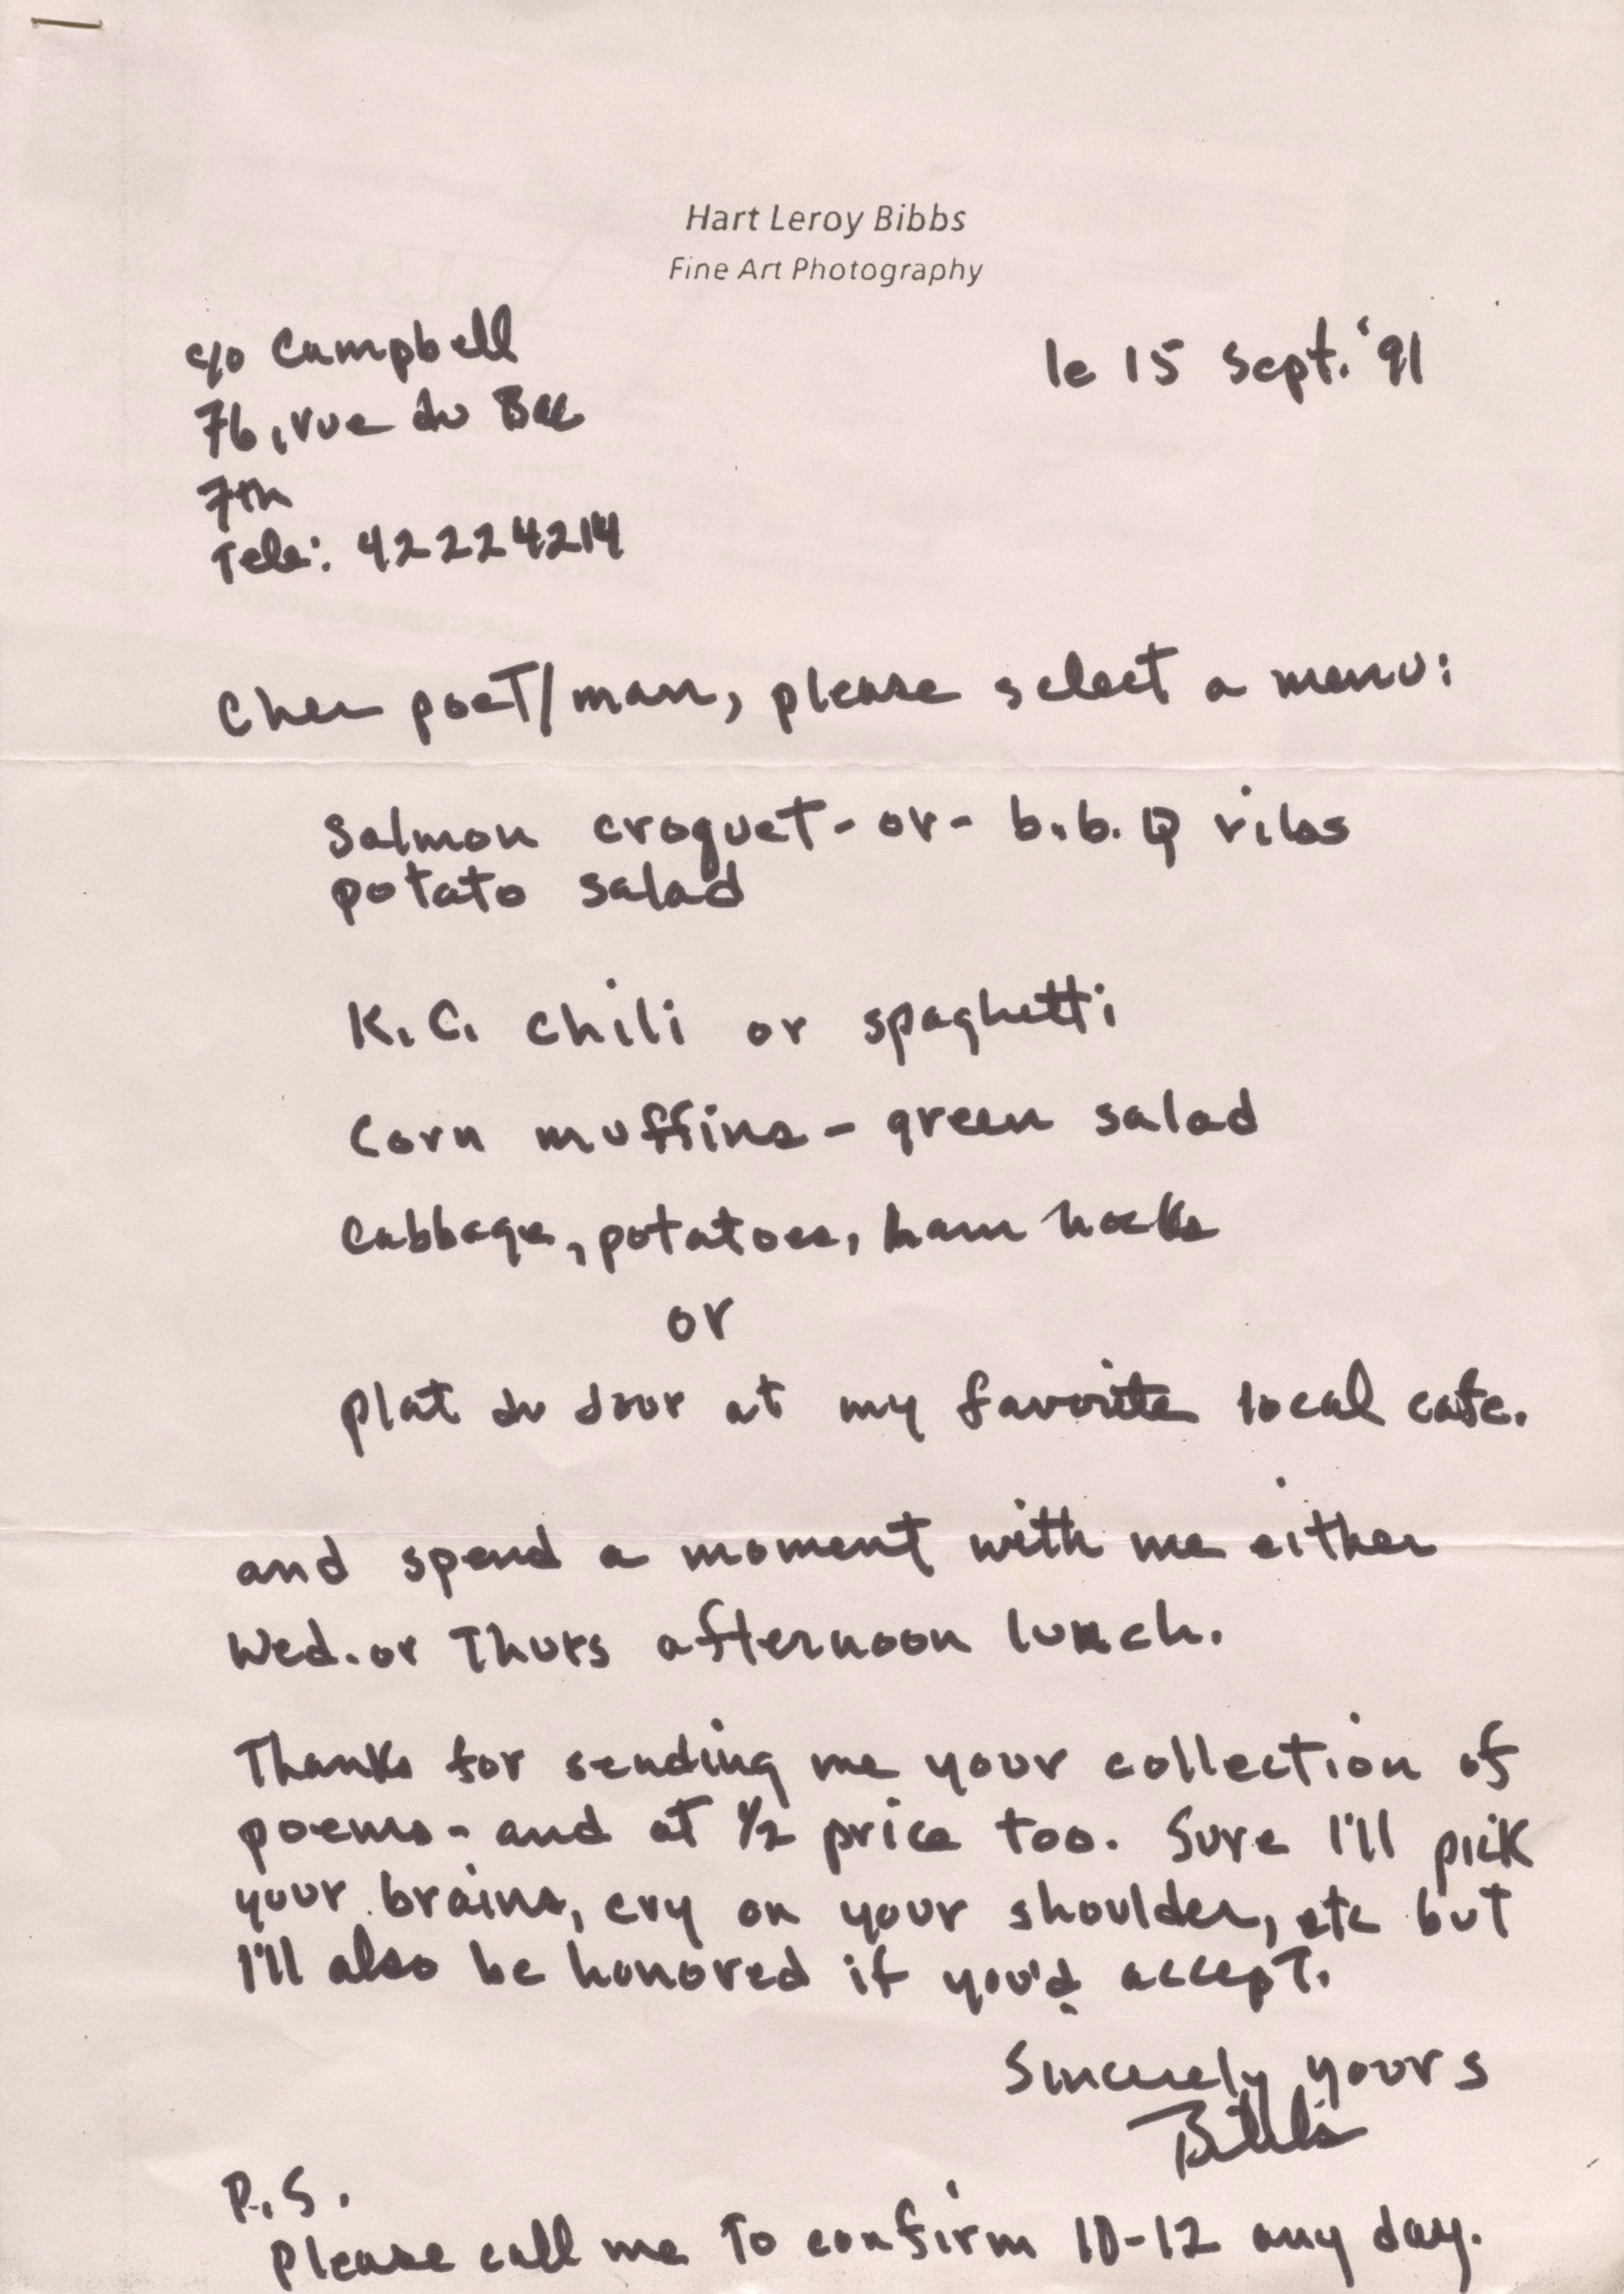 Hart Leroy Bibbs
Fine Art Photography
c/o Campbell
76, rue du Bac
7th
Tele: 42224214
le 15 Sept. '91
Cher poet/man, please select a menu:
Salmon croquet - or - b.b.Q ribs
potato salad
K.C. chili or spaghetti
Corn muffins - green salad
Cabbage, potatoes, ham hocks
or
plat du jour at my favorite local cafe.
and spend a moment with me either
Wed. or Thurs afternoon lunch.
Thanks for sending me your collection of
poems - and at 1/2 price too. Sure I'll pick
your brains, cry on your shoulder, etc but
I'll also be honored if you'd accept.
Sincerely yours
Bibbs
P.S.
Please call me to confirm 10-12 any day.